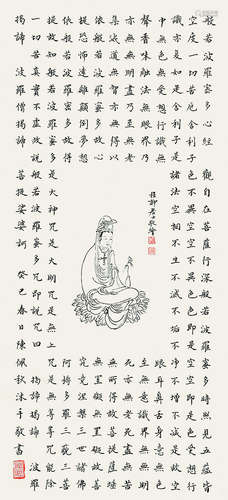 般若波羅蜜多心經 觀自在菩薩行深般若波羅蜜多時照見五蘊皆
空度一切苦厄舍利子色不異空空不異色色即是空空即是色受想行
識亦復如是舍利子是諸法空相不生不滅不垢不淨不增不減是故空
中無色無受想行識無眼耳鼻舌身意無色
聲香味觸法無眼界乃至無意識界無無明
亦無無明盡乃至無老死亦無老死盡無苦
集滅道無智亦無得以無所得故菩提薩埵
依般若波羅蜜多故心無罣礙無罣礙故無有
恐怖遠離顛倒夢想究竟涅槃三世諸佛
依般若波羅蜜多故得阿耨多羅三藐三菩
提故知般若波羅蜜多是大神咒是大明咒是無上咒是無等等咒能除
一切苦真實不虛故說般若波羅蜜多咒即說咒曰 揭諦揭諦 波羅
揭諦 波羅僧揭諦 菩提娑婆訶 癸巳春日陳佩秋沐手敬書